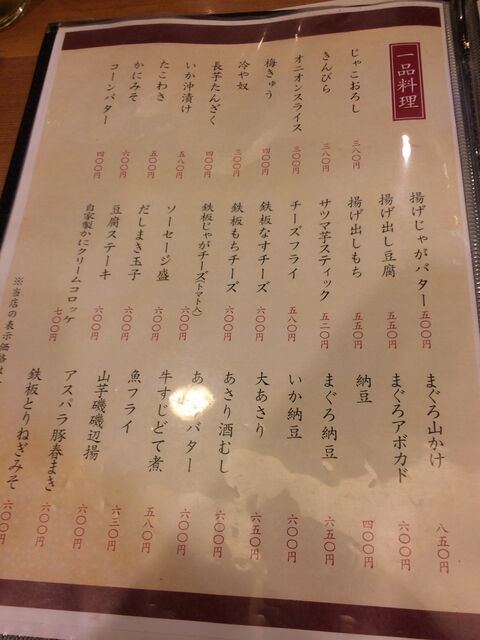 一品料理
じゃこおろし 三八〇円
きんぴら 三八〇円
オニオンスライス 三〇〇円
梅きゅう 四〇〇円
冷や奴 三〇〇円
長芋たんざく 四〇〇円
いか沖漬け 五八〇円
たこわさ 五〇〇円
かにみそ 六〇〇円
コーンバター 四〇〇円
揚げじゃがバター 五〇〇円
揚げ出し豆腐 五五〇円
揚げ出しもち 五五〇円
サツマ芋スティック 五二〇円
チーズフライ 五八〇円
鉄板なすチーズ 六〇〇円
鉄板もちチーズ 六〇〇円
鉄板じゃがチーズ(トマト入) 六〇〇円
ソーセージ盛 六〇〇円
だしまき玉子 六〇〇円
豆腐ステーキ 六〇〇円
自家製かにクリームコロッケ 七〇〇円
まぐろ山かけ 八五〇円
まぐろアボカド 六〇〇円
納豆 四〇〇円
まぐろ納豆 六五〇円
いか納豆 六〇〇円
大あさり 六五〇円
あさり酒むし 六〇〇円
バター 六〇〇円
牛すじどて煮 五八〇円
魚フライ 六三〇円
山芋磯磯辺揚 六〇〇円
アスパラ豚春まき 六〇〇円
鉄板とりねぎみそ 六〇〇円
※当店の表示価格は